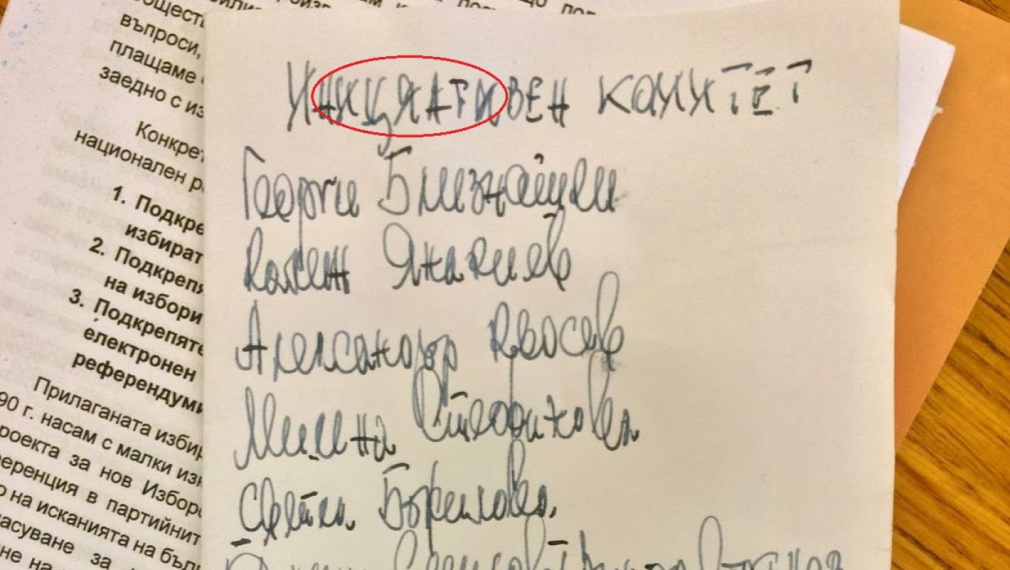 въпроси,
плащаме
заедно с из
Конкре
национален р
1. Подкре
избират
2. Подкрепя
на избори
3. Подкрепяте
електронен
референдуми
Прилаганата избир
90 г. насам с малки из
роекта за нов Изборе
ференция в партийнит
о на исканията на бъл
ласуване за
не на
ИНИЦЯАТИВЕН КОМИТЕТ
Георги Близнашки
Калин Янакиев
Александър Кьосев
Милена Стефанова
Светла